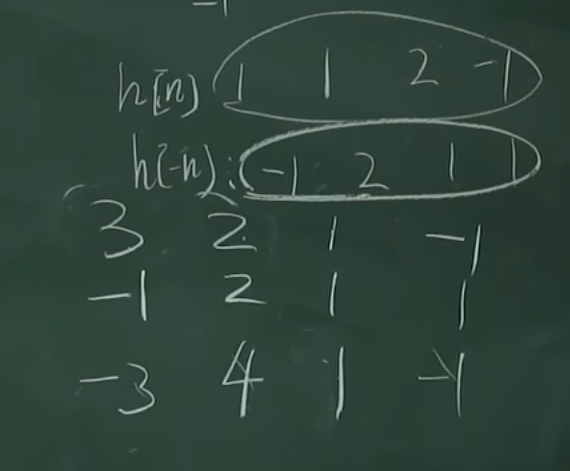 -1
h[n] 1 1 2 -1
h[-n]: -1 2 1 1
3 2 1 -1
-1 2 1 1
-3 4 1 -1